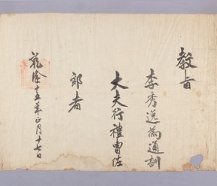 教旨
李秀遠爲通訓
大夫行禮曹佐
郎者
乾隆十五年正月十七日